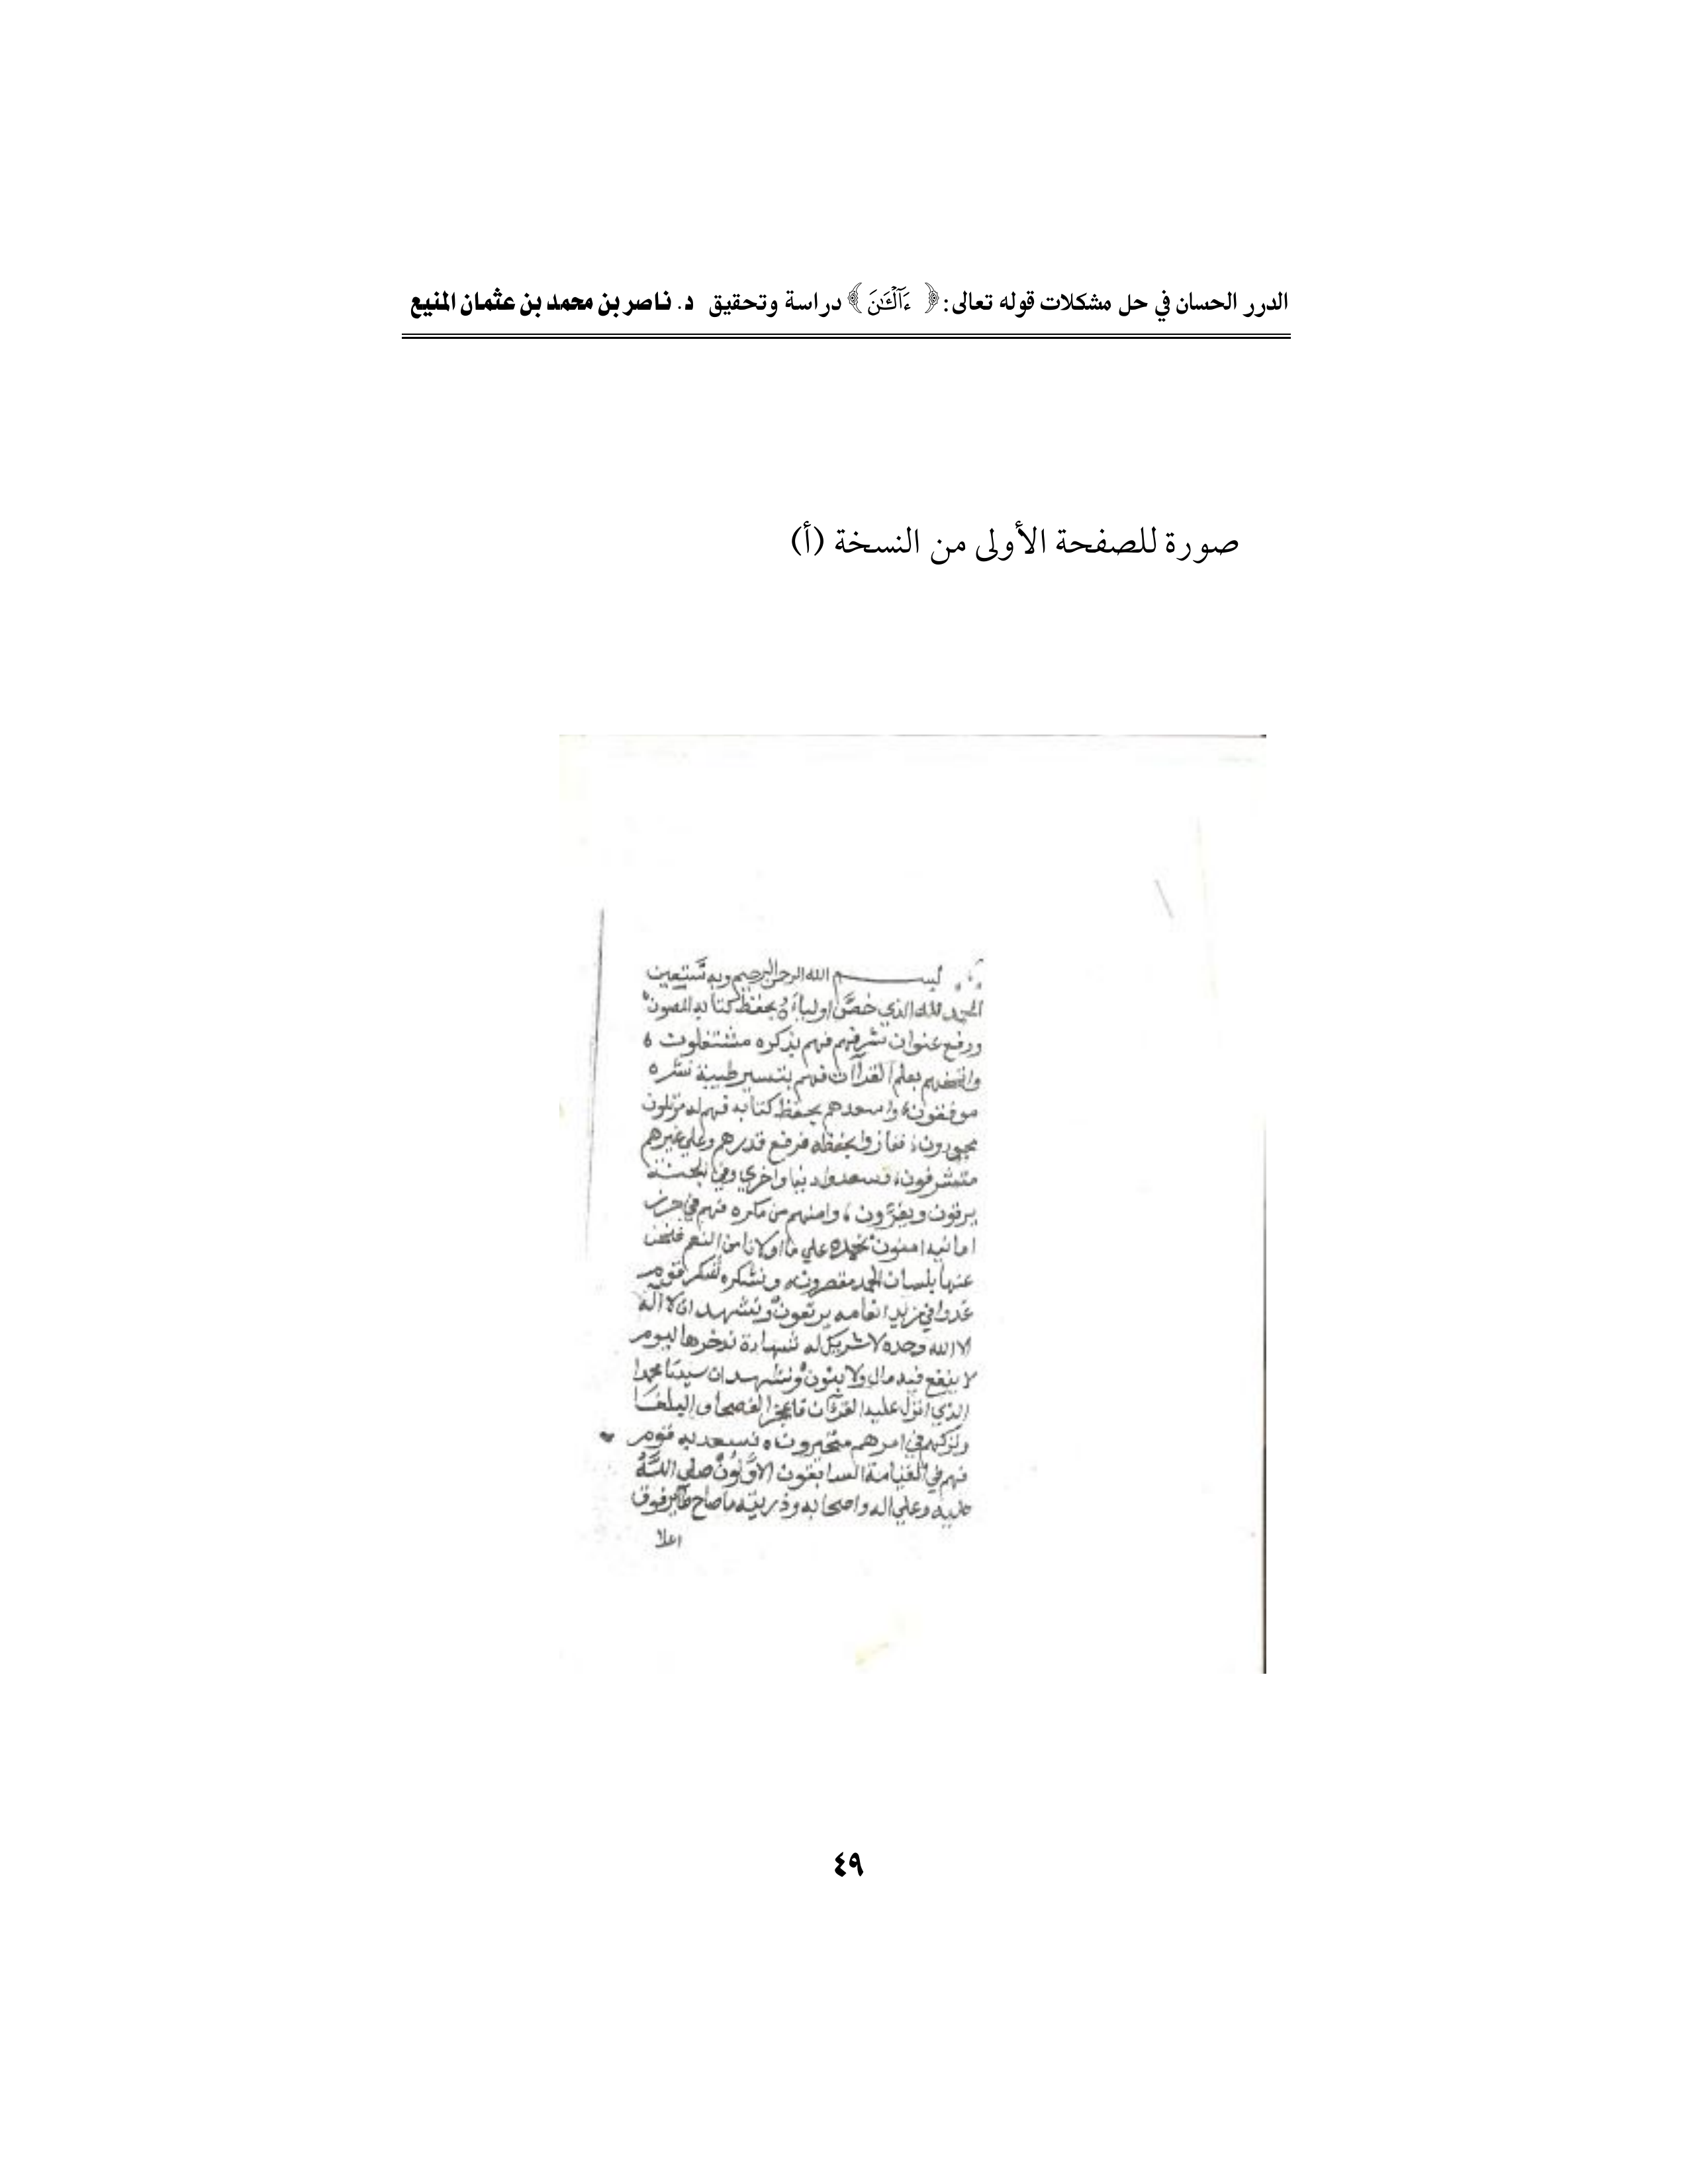 الدرر الحسان في حل مشكلات قوله تعالى: ﴿ ءَآلْـَٰٔنَ ﴾ دراسة وتحقيق د. ناصر بن محمد بن عثمان المنيع
صورة للصفحة الأولى من النسخة (أ)
بسم الله الرحمن الرحيم وبه نستعين
الحمد لله الذي خصَّ اولياءَه بحفظ كتابه المصون
ورفع عنوان شرفهم فهم بذكره مشتغلون
بعلم القرآان فهم بتيسير طيبة نشره
موفقون واسعدهم بحفظ كتابه فهم له مرتلون
مجودون ففازوا بحفظه فرفع قدرهم وعلي غيرهم
متشرفون فسعدوا دنيا واخري وفي الجنة
يرقون ويقرؤون وامنهم من مكره فهم في حرز
امانيه امنون نحمده علي ما اولانا من النعم فنحن
عنها بلسان الحمد مقصرون ونشكره شكر قوم
غدوا في مزيد انعامه يرتعون ونشهد ان لا اله
الا الله وحده لا شريك له شهادة ندخرها ليوم
لا ينفع فيه مال ولا بنون ونشهد ان سيدنا محمدا
الذي انزل عليه القرآن فاعجز الفصحا والبلغا
وتركهم في امرهم متحيرون فسعد به قوم
فهم في القيامة السابقون الاوَّلون صلي اللَّه
عليه وعلي اله واصحابه وذريته ما صاح طاير فوق
اعلا
٤٩